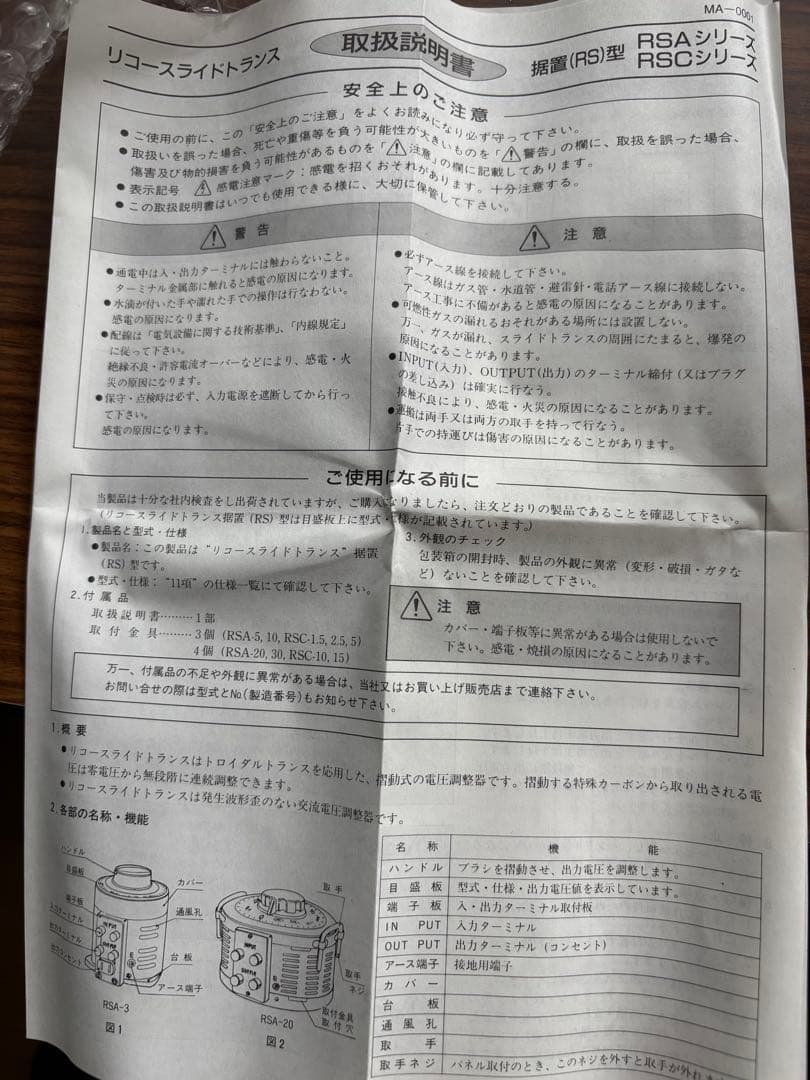 MA-0001
リコースライドトランス 取扱説明書 据置(RS)型 RSAシリーズ
RSCシリーズ
安全上のご注意
●ご使用の前に、この「安全上のご注意」をよくお読みになり必ず守って下さい。
●取扱いを誤った場合、死亡や重傷等を負う可能性が大きいものを「⚠警告」の欄に、取扱を誤った場合、
傷害及び物的損害を負う可能性があるものを「⚠注意」の欄に記載してあります。
●表示記号 感電注意マーク:感電を招くおそれがあります。十分注意する。
●この取扱説明書はいつでも使用できる様に、大切に保管して下さい。
⚠ 警告
●通電中は入・出力ターミナルには触わらないこと。
ターミナル金属部に触れると感電の原因になります。
●水滴が付いた手や濡れた手での操作は行なわない。
感電の原因になります。
●配線は「電気設備に関する技術基準」、「内線規定」
に従って下さい。
絶縁不良・許容電流オーバーなどにより、感電・火
災の原因になります。
●保守・点検時は必ず、入力電源を遮断してから行っ
て下さい。
感電の原因になります。
⚠ 注意
●必ずアース線を接続して下さい。
アース線はガス管・水道管・避雷針・電話アース線に接続しない。
アース工事に不備があると感電の原因になることがあります。
●可燃性ガスの漏れるおそれがある場所には設置しない。
万一、ガスが漏れ、スライドトランスの周囲にたまると、爆発の
原因になることがあります。
●INPUT(入力)、OUTPUT(出力)のターミナル締付(又はプラグ
の差し込み)は確実に行なう。
接触不良により、感電・火災の原因になることがあります。
●運搬は両手又は両方の取手を持って行なう。
片手での持運びは傷害の原因になることがあります。
ご使用になる前に
当製品は十分な社内検査をし出荷されていますが、ご購入なりましたら、注文どおりの製品であることを確認して下さい。
(リコースライドトランス据置(RS)型は目盛板上に型式・仕様が記載されています。)
1.製品名と型式・仕様
●製品名:この製品は“リコースライドトランス”据置
(RS)型です。
●型式・仕様:“11項”の仕様一覧にて確認して下さい。
2.付属品
取扱説明書………1部
取付金具………3個(RSA-5, 10, RSC-1.5, 2.5, 5)
4個(RSA-20, 30, RSC-10, 15)
3.外観のチェック
包装箱の開封時、製品の外観に異常(変形・破損・ガタな
ど)ないことを確認して下さい。
⚠ 注意
カバー・端子板等に異常がある場合は使用しないで
下さい。感電・焼損の原因になることがあります。
万一、付属品の不足や外観に異常がある場合は、当社又はお買い上げ販売店まで連絡下さい。
お問い合せの際は型式とNo.(製造番号)もお知らせ下さい。
1.概要
●リコースライドトランスはトロイダルトランスを応用した、摺動式の電圧調整器です。摺動する特殊カーボンから取り出される電
圧は零電圧から無段階に連続調整できます。
●リコースライドトランスは発生波形歪のない交流電圧調整器です。
2.各部の名称・機能
ハンドル
目盛板
端子板
入力ターミナル
出力ターミナル
出力コンセント
カバー
通風孔
台板
アース端子
INPUT
OUTPUT
RSA-3
図1
取手
取手
ネジ
取付金具
取付穴
INPUT
OUTPUT
RSA-20
図2
名称 機能
ハンドル ブラシを摺動させ、出力電圧を調整します。
目盛板 型式・仕様・出力電圧値を表示しています。
端子板 入・出力ターミナル取付板
IN PUT 入力ターミナル
OUT PUT 出力ターミナル(コンセント)
アース端子 接地用端子
カバー
台板
通風孔
取手
取手ネジ パネル取付のとき、このネジを外すと取手が外れ